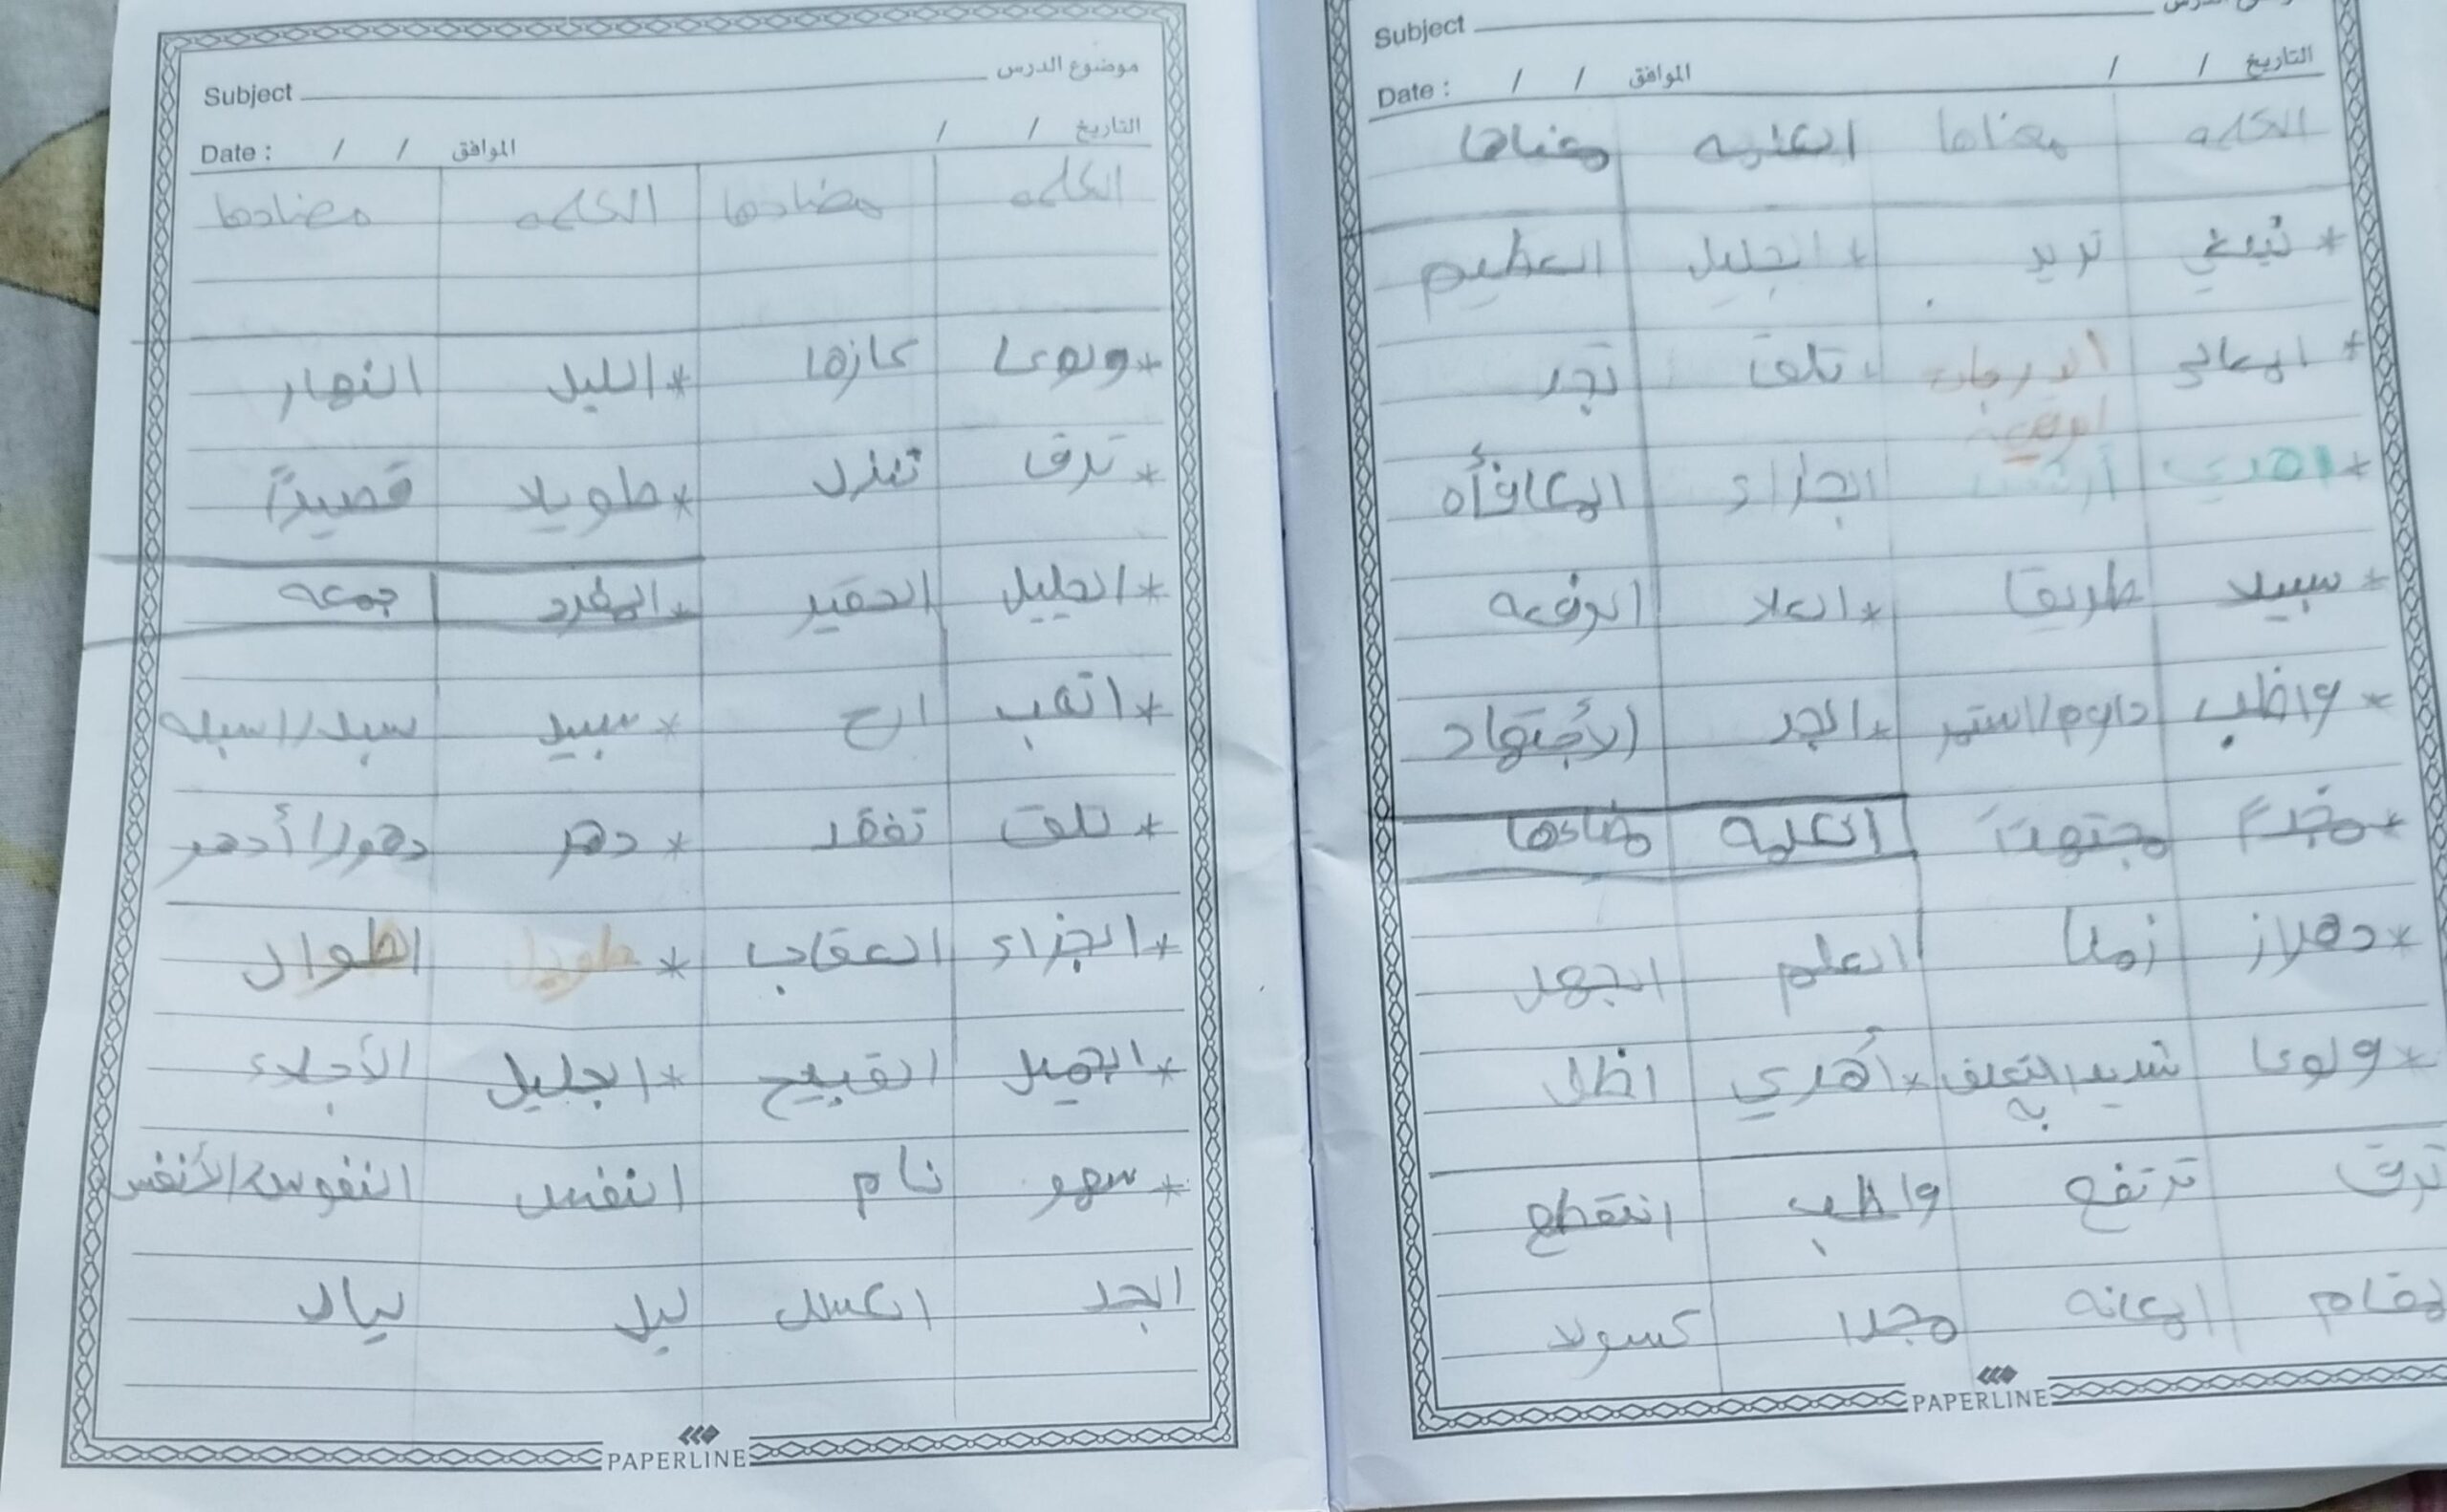 Subject
التاريخ / / الموافق / / Date :
الكلمه معناها الكلمه معناها
* تبغي تريد * الجليل العظيم
* المعالي الدرجات الرفيعة * تلق تجد
* اهدي الجزاء المكافأه
* سبيلا طريقا * العلا الرفعه
* واظب داوم/استمر * الجد الأجتهاد
الكلمه مضادها
* دهرا زمنا العلم الجهل
* ولوعا شديد التعلق به * أهدي اظل
ترق ترتفع واظب انقطع
مقام المكانه مجدا كسولا
PAPERLINE
موضوع الدرس Subject
التاريخ / / الموافق / / Date :
الكلمه مضادها الكلمه مضادها
* ولوعا كارها * الليل النهار
* ترق تنزل * طويلا قصيراً
* الجليل الحقير * المفرد جمعه
* اتعب ارح * سبيل سبل/اسبله
* تلق تفقد * دهر دهور/أدهر
* الجزاء العقاب * طويل اطوال
* الجميل القبيح * الجليل الأجلاء
* سهر نام النفس النفوس/الأنفس
الجد الكسل ليل ليال
PAPERLINE